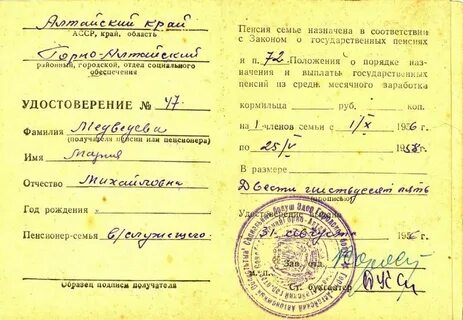 Алтайский край
АССР, край, область
Горно-Алтайский
районный, городской, отдел социального
обеспечения
УДОСТОВЕРЕНИЕ № 47
Фамилия Медведева
(получателя пенсии или пенсионера)
Имя Мария
Отчество Михайловна
Год рождения
Пенсионер-семья в/служащего
Образец подписи получателя
Пенсия семье назначена в соответствии
с Законом о государственных пенсиях
и п. 72 Положения о порядке назначения
значения и выплаты государственных
пенсий из средн. месячного заработка
кормильца руб. коп.
на 1 членов семьи с 1/X 1956 г.
по 25/V 1958 г.
В размере
Двести шестьдесят пять
(прописью)
Удостоверение
31 августа 1956 г.
Зав. отд.
м. п.
Ст. бухгалтер